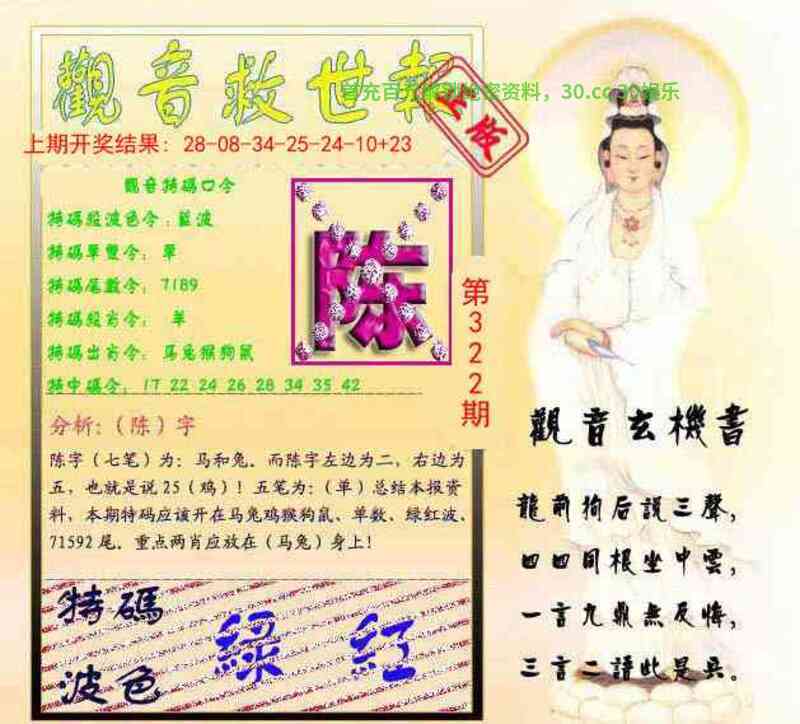 觀音救世報
首充百
资料，30.cc
娱乐
上期开奖结果：28-08-34-25-24-10+23
觀音特碼口令
特碼
波色令：藍波
特碼單雙令：單
特碼尾數令：7189
特碼
肖令：羊
特碼出肖令：马兔猴狗鼠
特中碼令：17 22 24 26 28 34 35 42
陈
第322期
分析：（陈）字
陈字（七笔）为：马和兔．而陈字左边为二，右边为
五，也就是说25（鸡）！五笔为：（单）总结本报资
料，本期特码应该开在马兔鸡猴狗鼠、单数、绿红波、
71592尾．重点两肖应放在（马兔）身上！
特碼
波色
綠 紅
觀音玄機書
龍前狗后説三聲，
四四同根坐中雲，
一言九鼎無反悔，
三言二語此是兵。